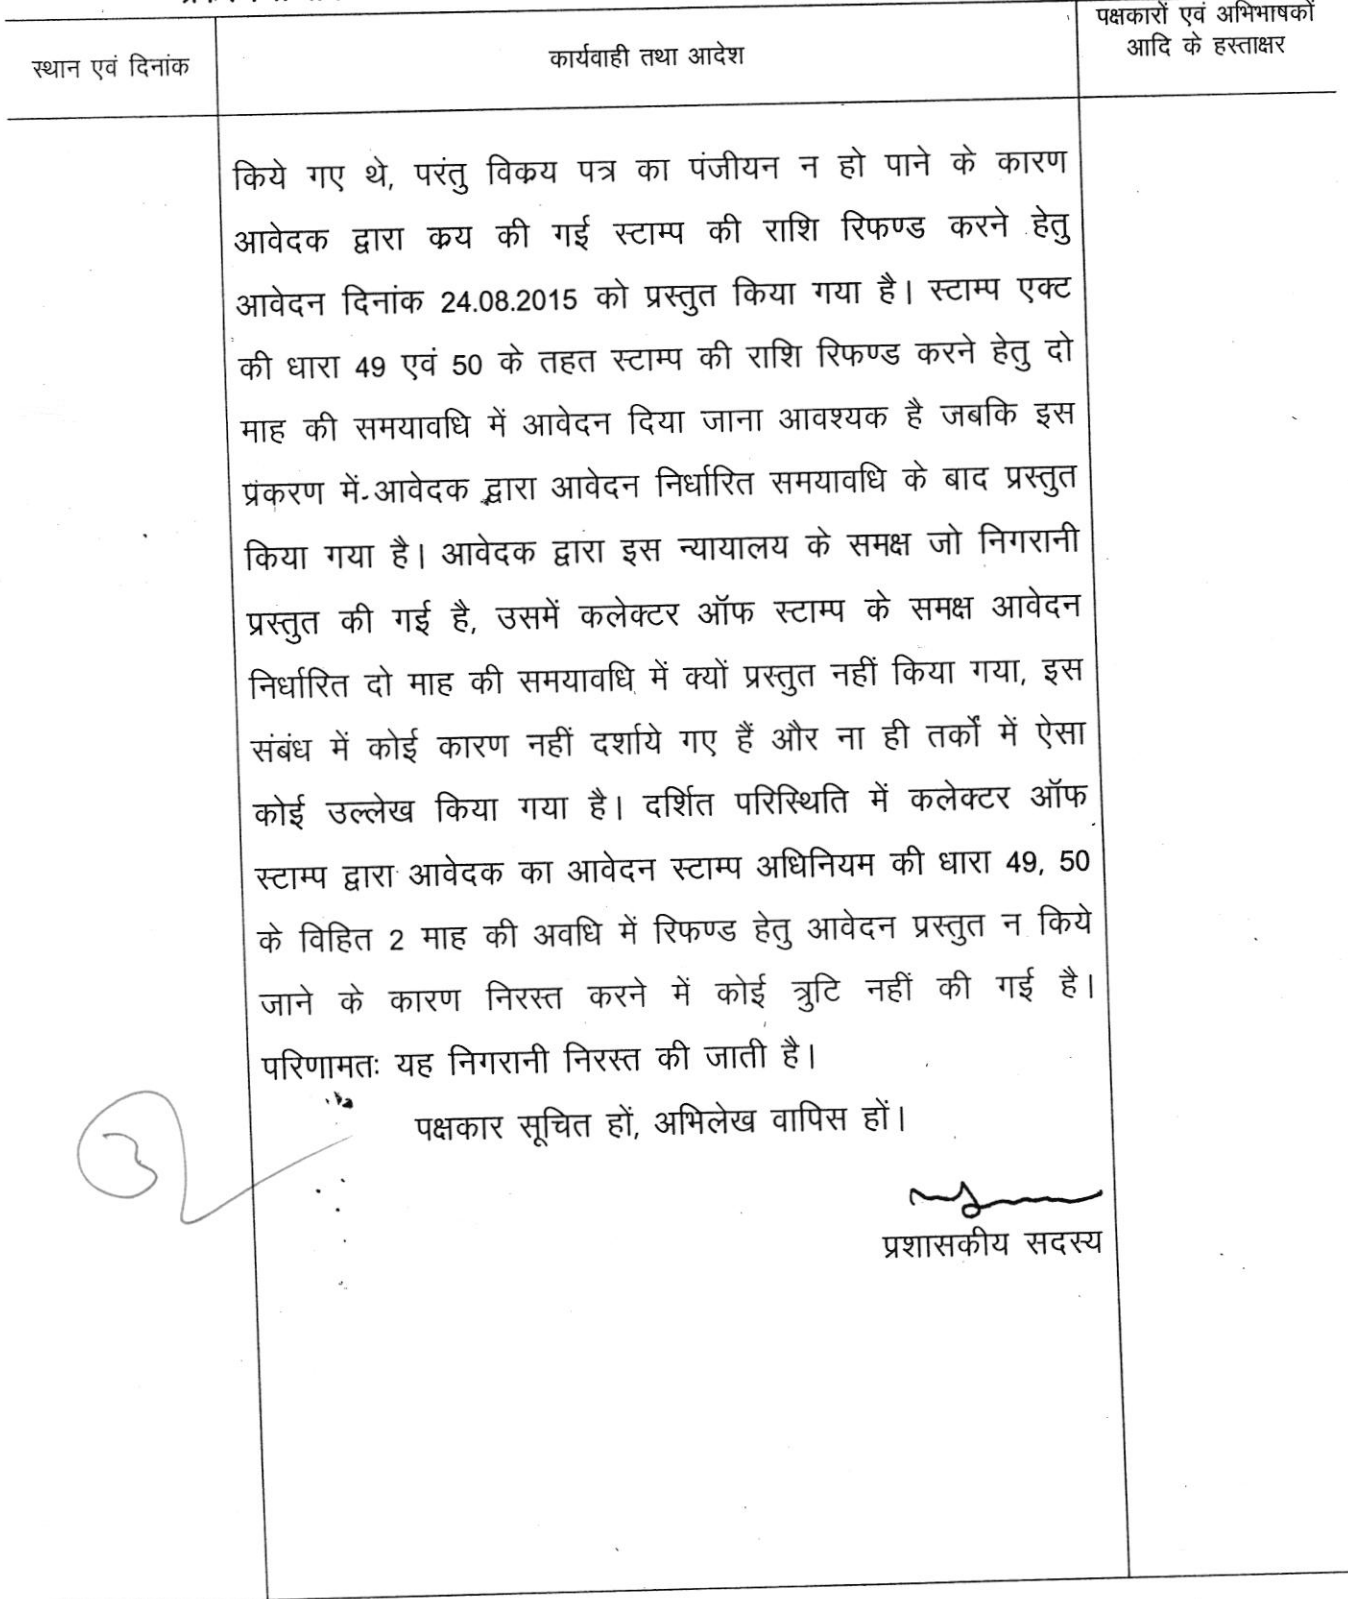 पक्षकारों एवं अभिभाषकों
आदि के हस्ताक्षर
स्थान एवं दिनांक
कार्यवाही तथा आदेश
किये गए थे, परंतु विकय पत्र का पंजीयन न हो पाने के कारण
आवेदक द्वारा कय की गई स्टाम्प की राशि रिफण्ड करने हेतु
आवेदन दिनांक 24.08.2015 को प्रस्तुत किया गया है। स्टाम्प एक्ट
की धारा 49 एवं 50 के तहत स्टाम्प की राशि रिफण्ड करने हेतु दो
माह की समयावधि में आवेदन दिया जाना आवश्यक है जबकि इस
प्रकरण में आवेदक द्वारा आवेदन निर्धारित समयावधि के बाद प्रस्तुत
किया गया है। आवेदक द्वारा इस न्यायालय के समक्ष जो निगरानी
प्रस्तुत की गई है, उसमें कलेक्टर ऑफ स्टाम्प के समक्ष आवेदन
निर्धारित दो माह की समयावधि में क्यों प्रस्तुत नहीं किया गया, इस
संबंध में कोई कारण नहीं दर्शाये गए हैं और ना ही तर्कों में ऐसा
कोई उल्लेख किया गया है। दर्शित परिस्थिति में कलेक्टर ऑफ
स्टाम्प द्वारा आवेदक का आवेदन स्टाम्प अधिनियम की धारा 49, 50
के विहित 2 माह की अवधि में रिफण्ड हेतु आवेदन प्रस्तुत न किये
जाने के कारण निरस्त करने में कोई त्रुटि नहीं की गई है।
परिणामतः यह निगरानी निरस्त की जाती है।
पक्षकार सूचित हों, अभिलेख वापिस हों।
प्रशासकीय सदस्य